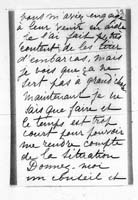 vous m'aviez engagé
à leur venir en aide
le
content de les tirer
d'embarras, mais je
vois que ça ne
sert pas à grand chose
maintenant je ne
sais que faire et
le temps est trop
court pour pouvoir
me rendre compte
de la situation
Donnez moi
un conseil et